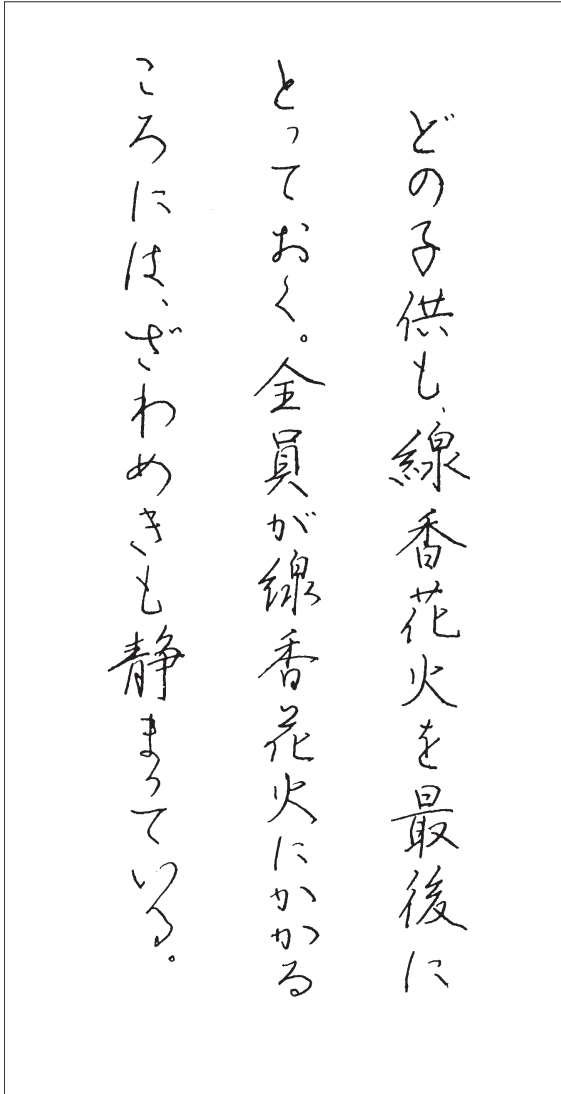 どの子供も、線香花火を最後に
とっておく。全員が線香花火にかかる
ころには、ざわめきも静まっている。